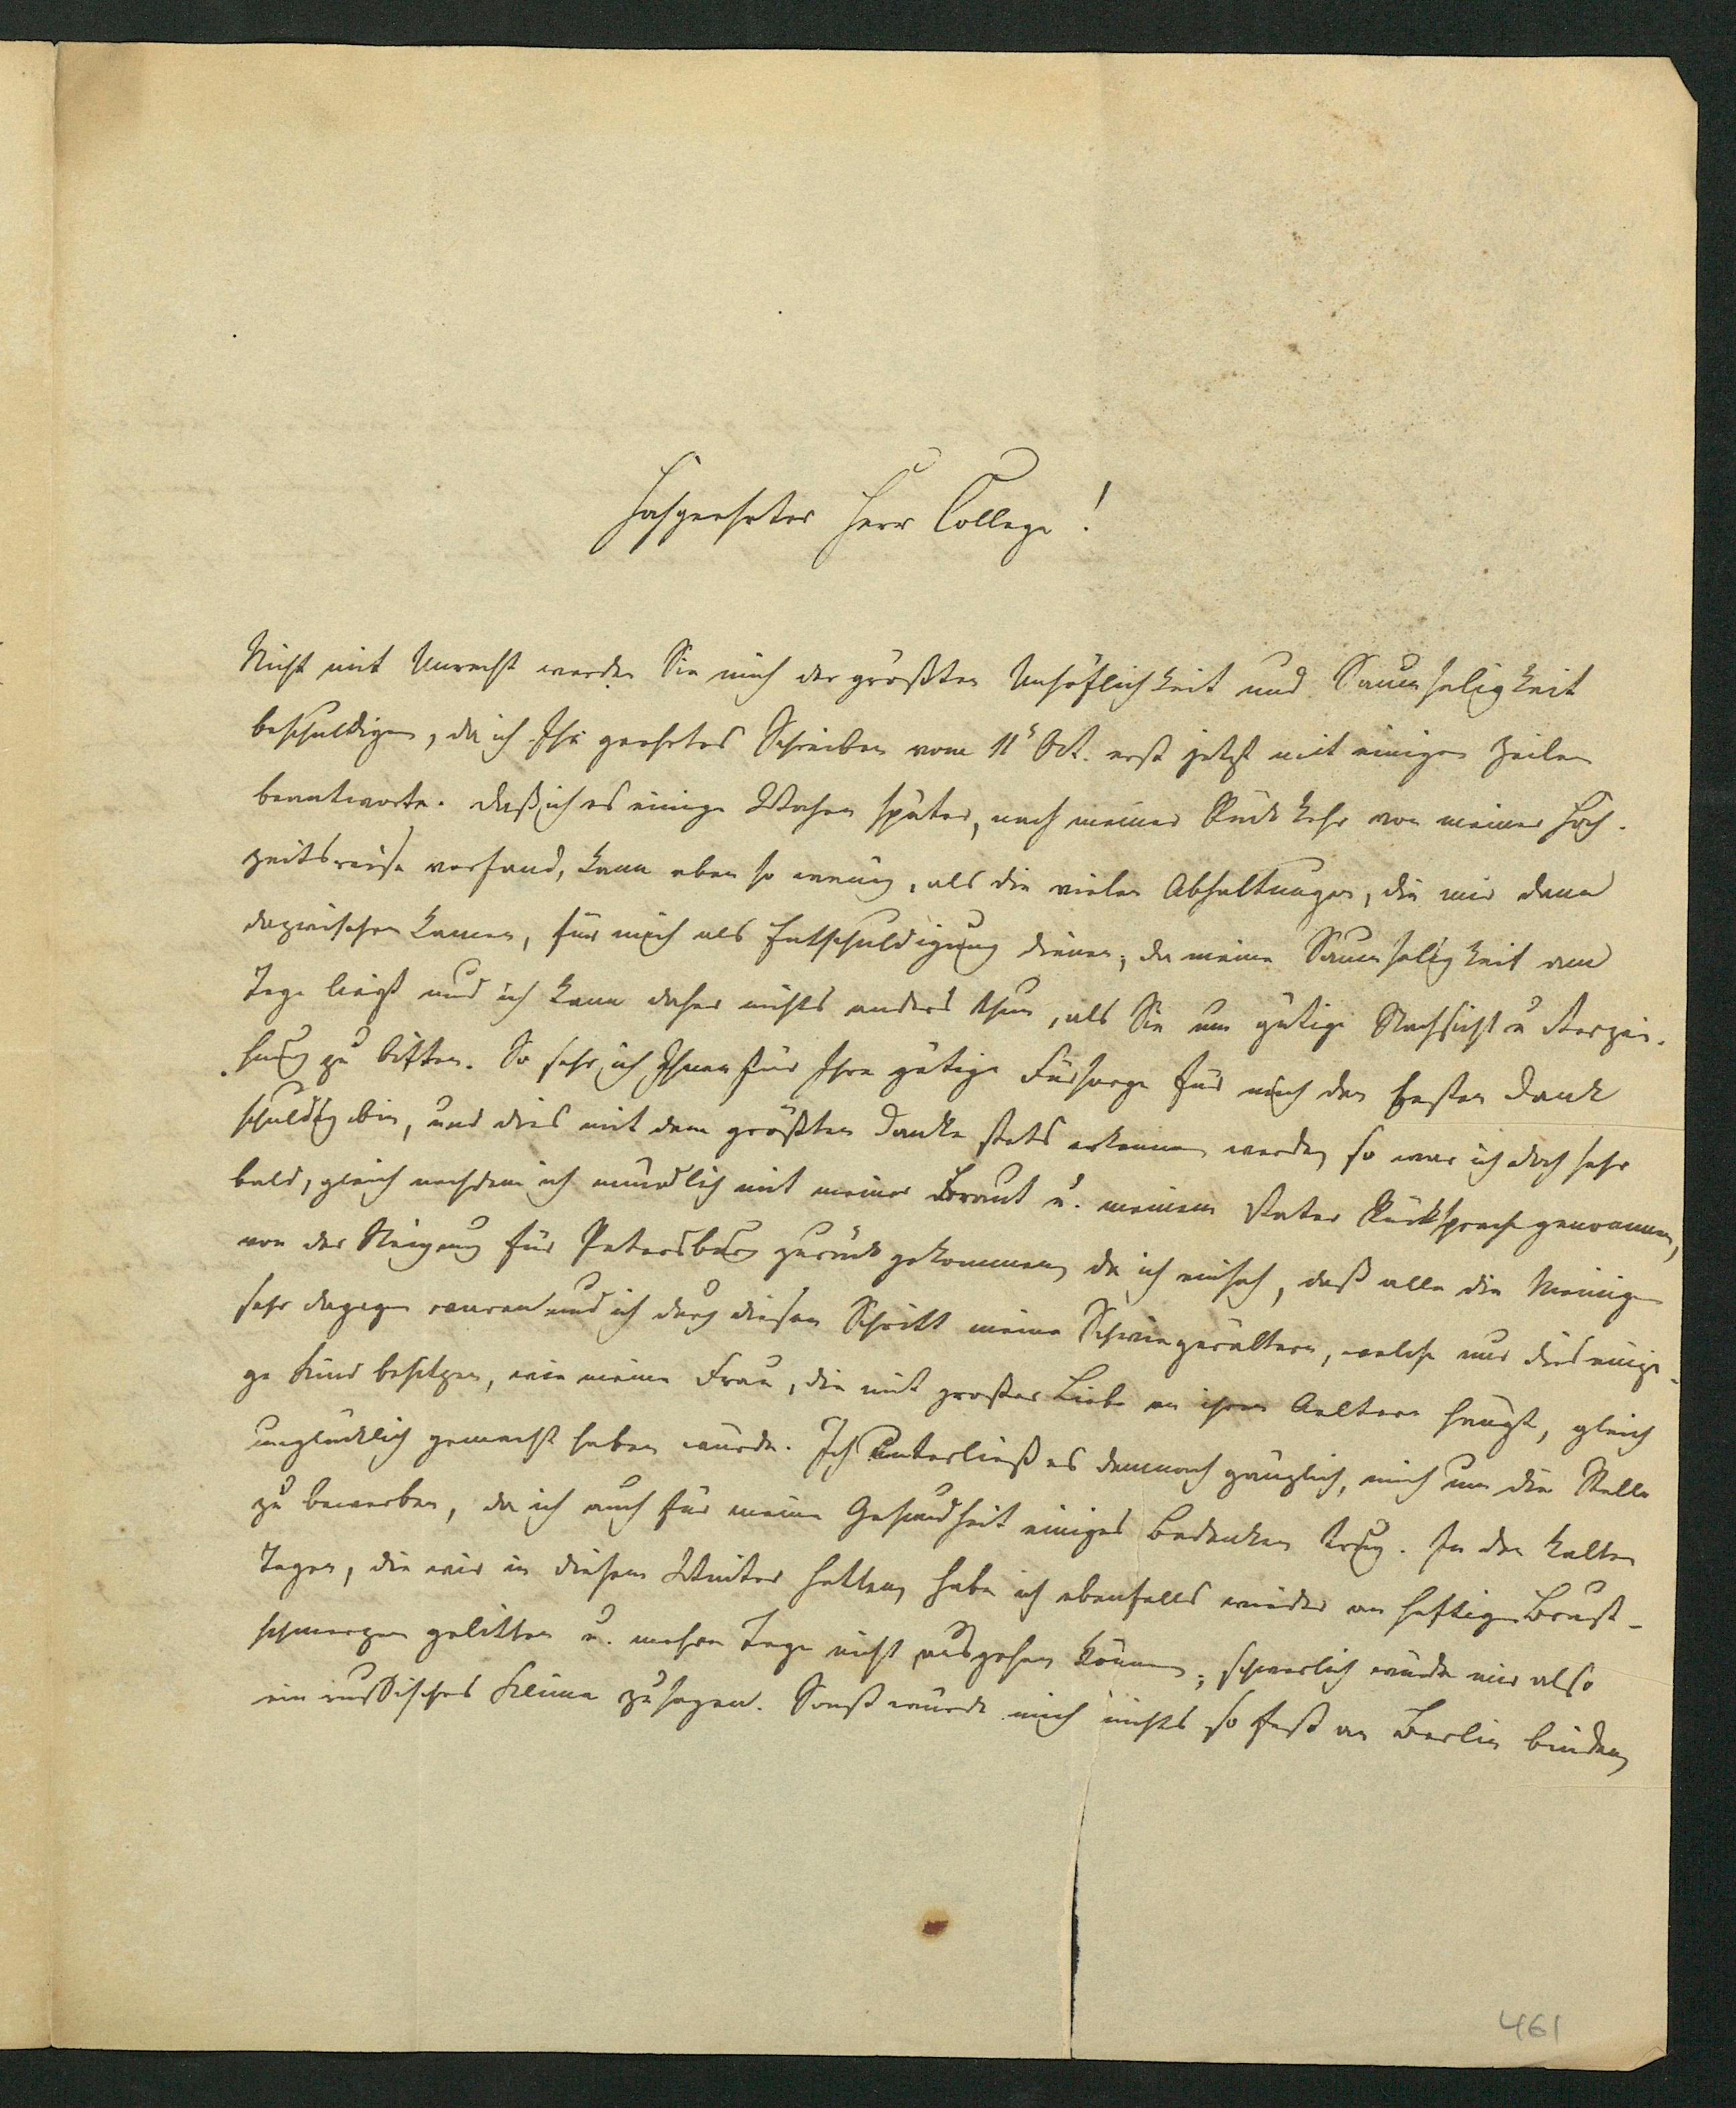 Hochgeehrter Herr College!
Nicht mit Unrecht werden Sie mich der größten Unhöflichkeit und Saumseligkeit
beschuldigen, da ich Ihr geehrtes Schreiben vom 11t Oct. erst jetzt mit einigen Zeilen
beantworte. Daß ich es einige Wochen später, nach meiner Rückkehr von meiner Hoch-
zeitsreise vorfand, kann eben so wenig, als die vielen Abhaltungen, die mir dann
dazwischen kamen, für mich als Entschuldigung dienen, da meine Saumseligkeit am
Tage liegt und ich kann daher nichts anders thun, als Sie um gütige Nachsicht u Verzei-
hung zu bitten. So sehr ich Ihnen für Ihre gütige Fürsorge für mich den besten Dank
schuldig bin, und dies mit dem größten Danke stets erkennen werde, so war ich doch sehr
bald, gleich nachdem ich mündlich mit meiner Braut u. meinem Vater Rücksprache genommen,
von der Neigung für Petersburg zurückgekommen, da ich einsah, daß alle die Meinigen
sehr dagegen waren und ich durch diesen Schritt meine Schwiegerältern, welche nur dies einzi-
ge Kind besitzen, wie meine Frau, die mit großer Liebe an ihren Aeltern hängt, gleich
unglücklich gemacht haben würde. Ich unterließ es demnach gänzlich, mich um die Stelle
zu bewerben, da ich auch für meine Gesundheit einiges Bedenken trug. In den kalten
Tagen, die wir in diesem Winter hatten, habe ich ebenfalls wieder an heftigen Brust-
schmerzen gelitten u. mehre Tage nicht ausgehen können, schwerlich würde mir also
ein russisches Klima zusagen. Sonst würde mich nichts so fest an Berlin binden,
461